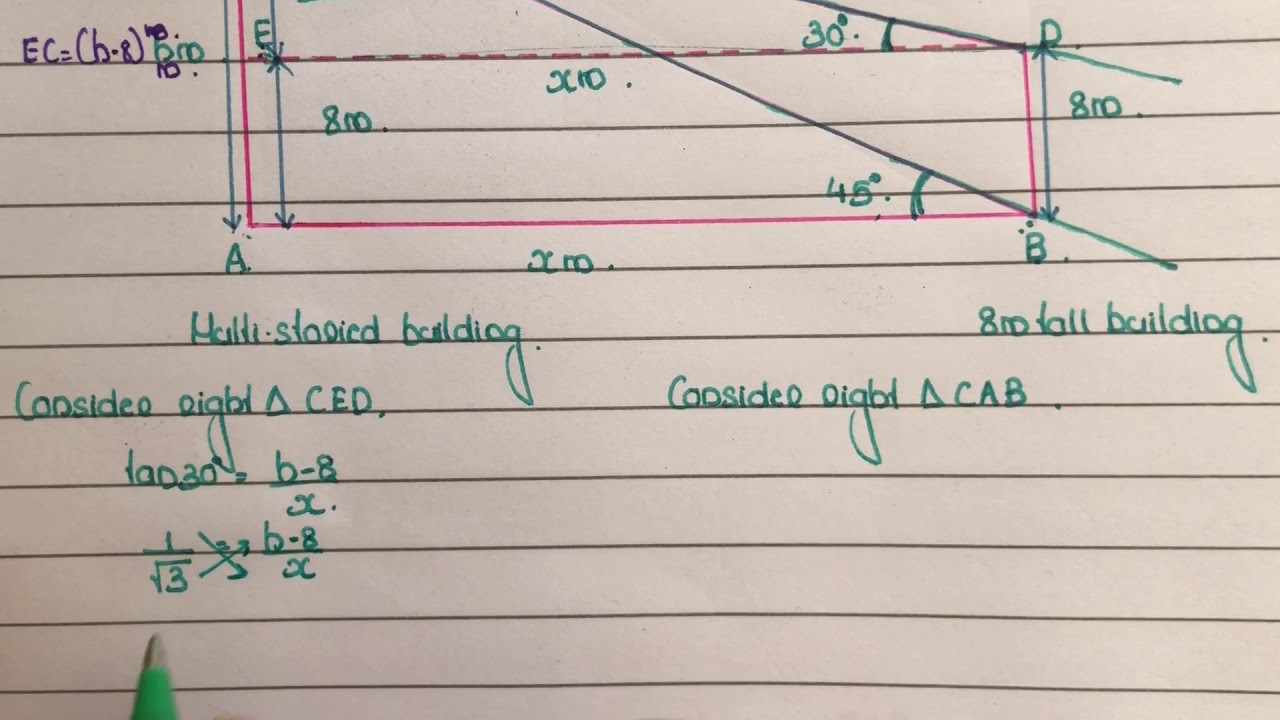 E
30°.
D
EC=(h-8)m
xm.
8m.
8m.
45°.
A.
xm.
B.
Multi-storied building.
8m tall building.
Consider right Δ CED.
Consider right Δ CAB.
tan30° = h-8/x.
1/√3 = h-8/x